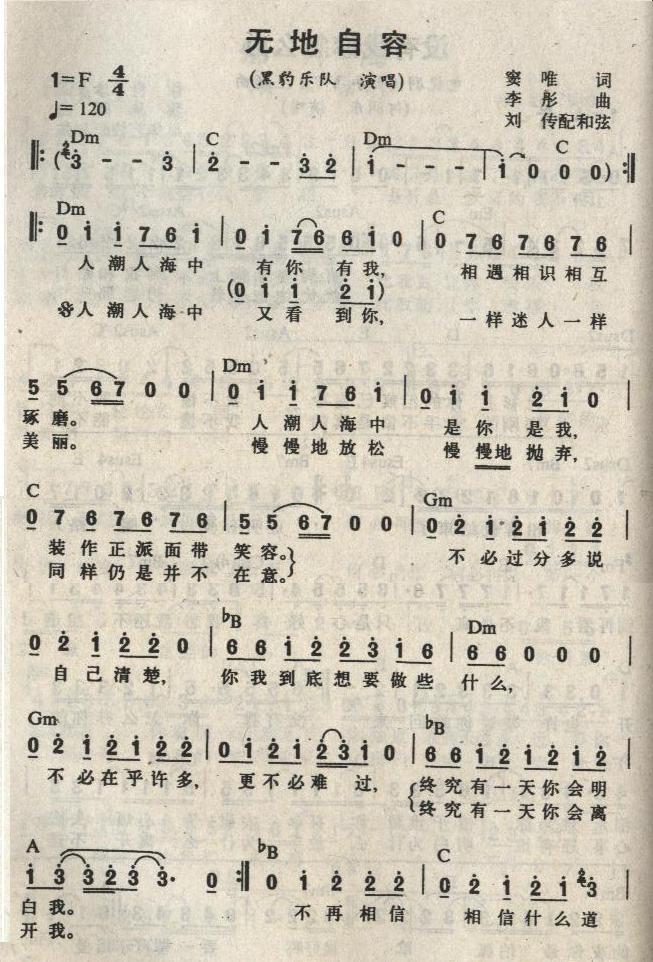 无地自容
1=F 4/4 (黑豹乐队 演唱) 窦唯 词
♩=120 李彤 曲
刘传配和弦
Dm C Dm C
‖: (3 - - 3 | 2 - - 3 2 | 1 - - - | 1 0 0 0) :‖
Dm C
‖: 0 1 1 7 6 1 | 0 1 7 6 6 1 0 | 0 7 6 7 6 7 6 |
人潮人海中 有你 有我, 相遇相识相互
(0 1 1 2 1)
人潮人海中 又看 到你, 一样迷人一样
Dm
5 5 6 7 0 0 | 0 1 1 7 6 1 | 0 1 1 2 1 0 |
琢磨。 人潮人海中 是你 是我,
美丽。 慢慢地放松 慢慢地 抛弃,
C Gm
0 7 6 7 6 7 6 | 5 5 6 7 0 0 | 0 2 1 2 1 2 2 |
装作正派面带 笑容。 不必过分多说
同样仍是并不 在意。
♭B Dm
0 2 1 2 2 0 | 6 6 1 2 2 3 1 6 | 6 6 0 0 0 |
自己清楚, 你我到底想要做些 什么,
Gm ♭B
0 2 1 2 1 2 2 | 0 1 2 1 2 3 1 0 | 6 6 1 2 1 2 1 2 |
不必在乎许多, 更不必难过, 终究有一天你会明
终究有一天你会离
A ♭B C
1 3 3 2 3 3· 0 :‖ 0 1 2 2 2 | 0 2 1 2 1 3 |
白我。 不再相信 相信什么道
开我。